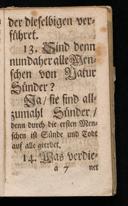 der dieselbigen ver-
führet.
13. Sind denn
nun daher alle Men-
schen von Natur
Sünder?
Ja/ sie sind all-
zumahl Sünder/
denn durch die ersten Men-
schen ist Sünde und Todt
auf alle geerbet.
14. Was verdie-
a 7 net